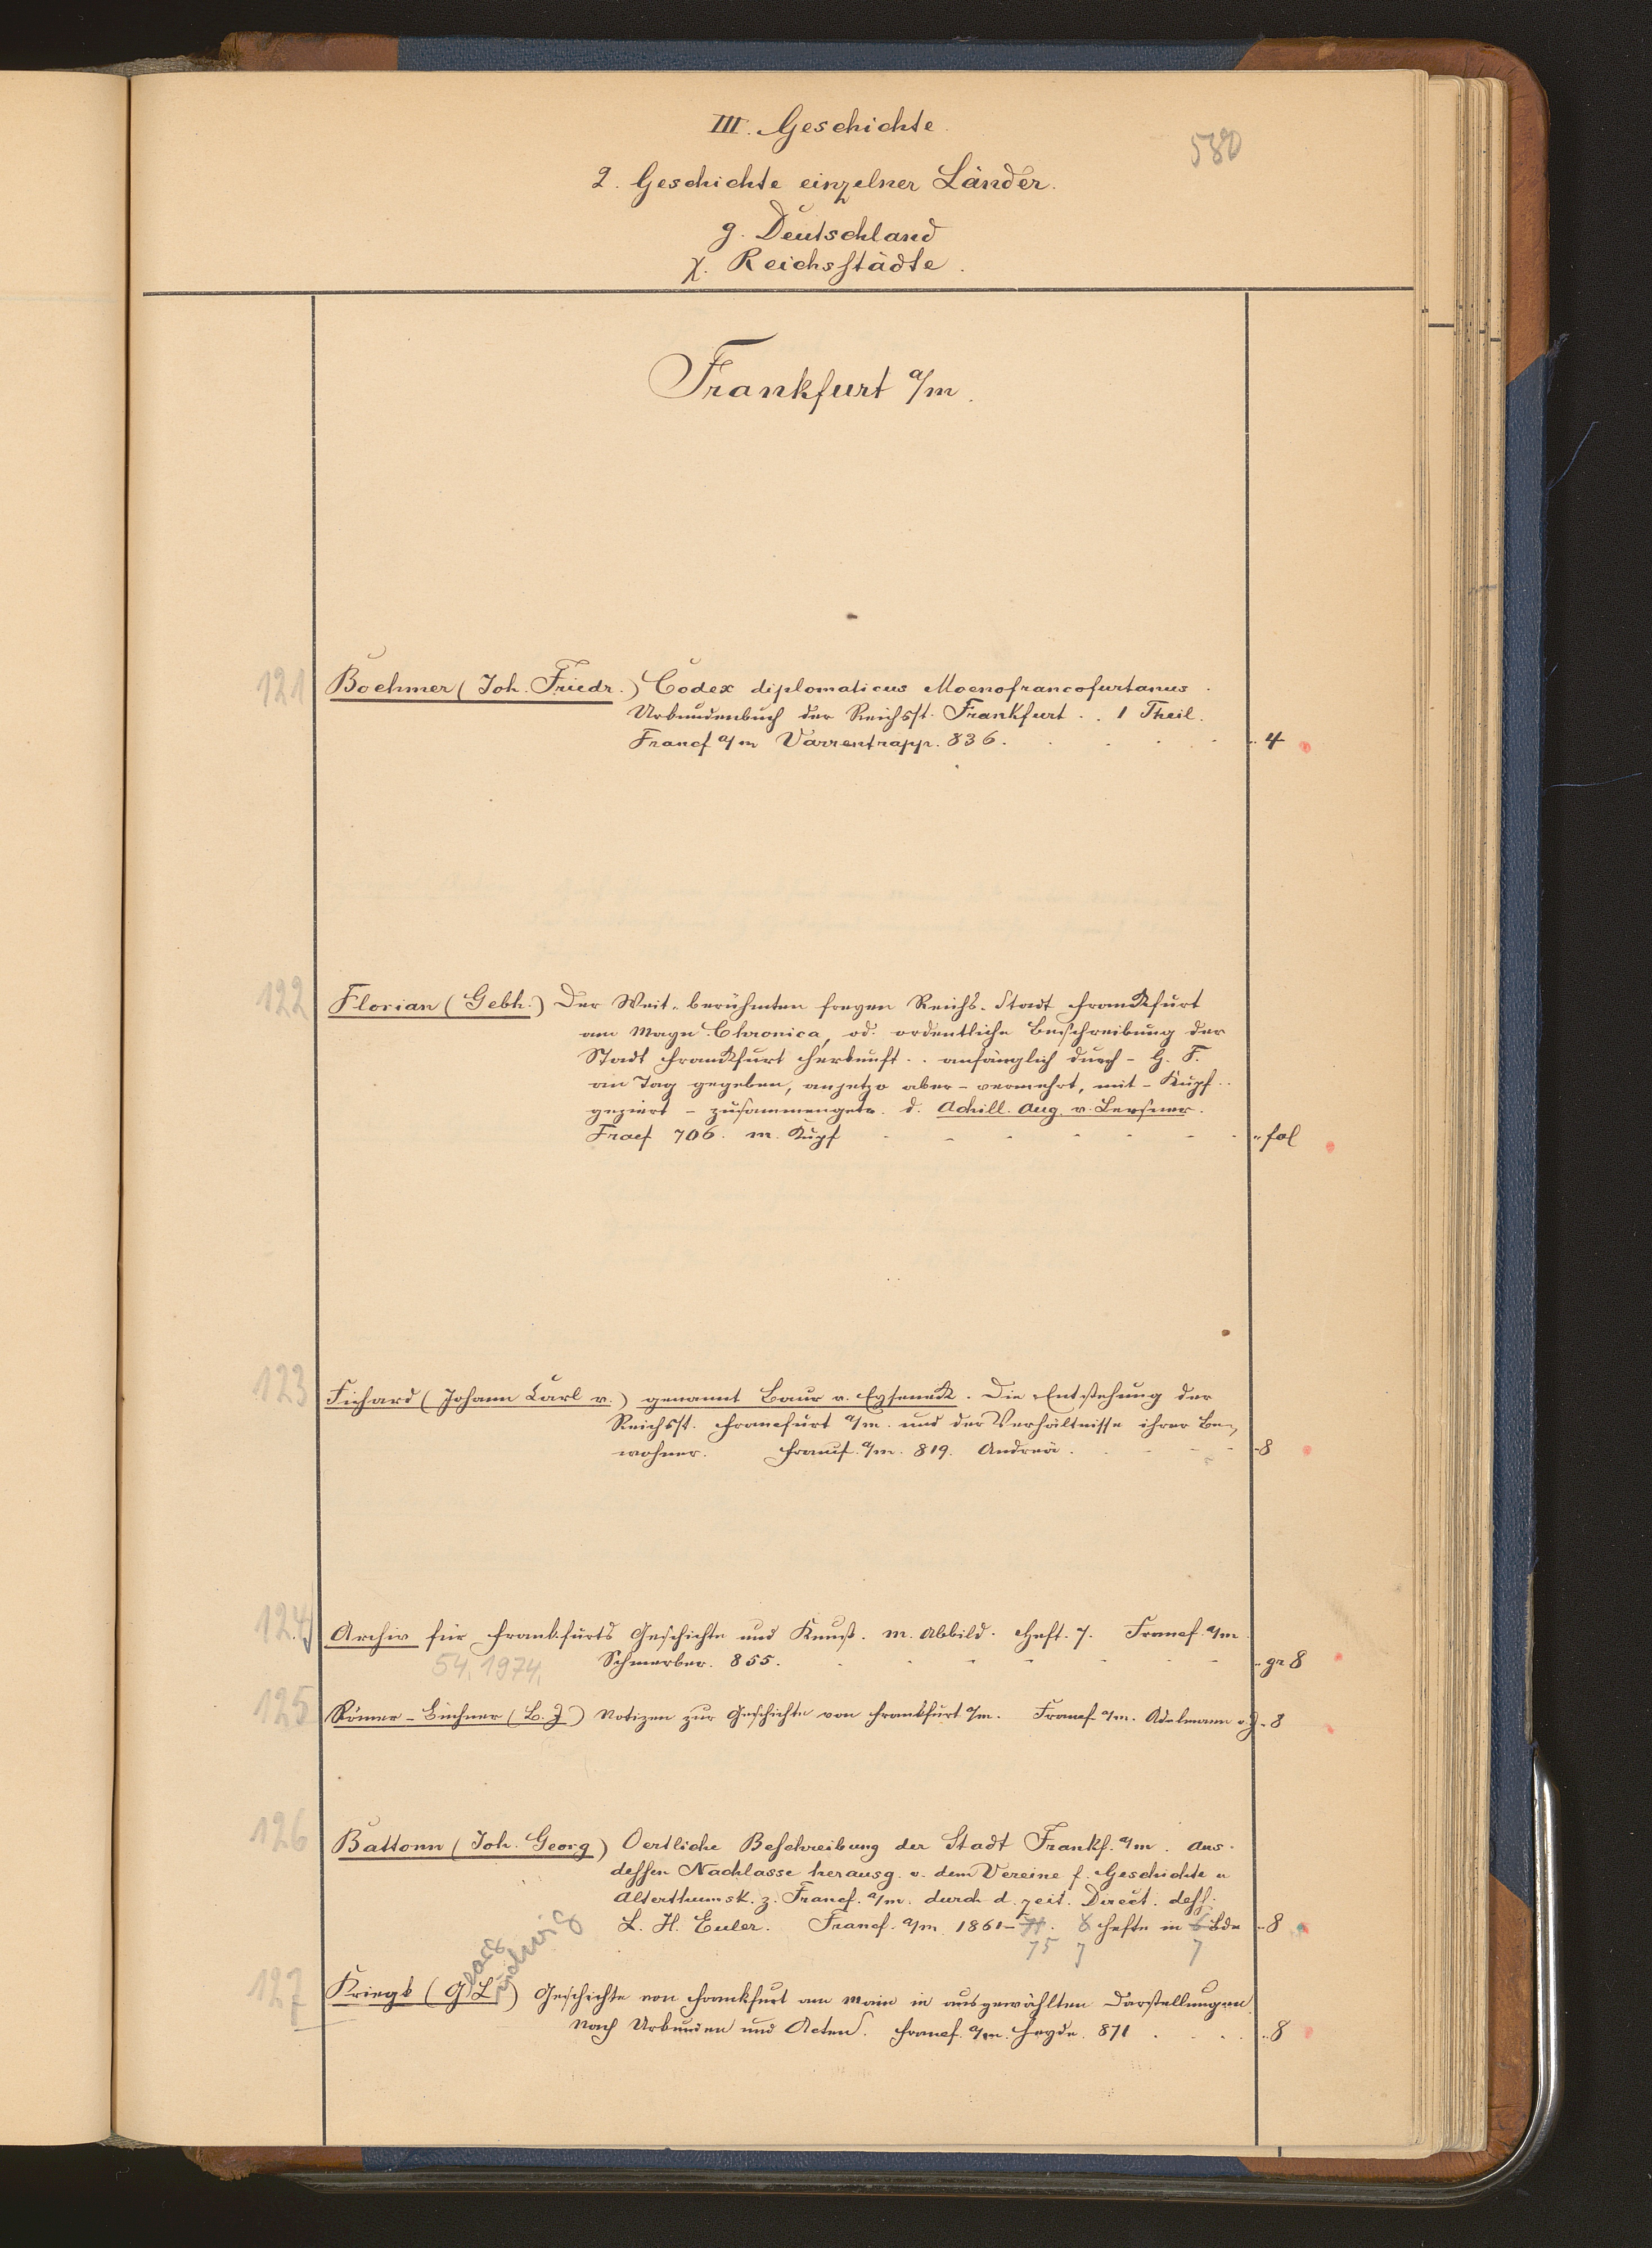 III. Geschichte.
580
2. Geschichte einzelner Länder.
g. Deutschland
χ. Reichsstädte.
Frankfurt a/m.
121 Boehmer (Joh. Friedr.) Codex diplomaticus Moenofrancofurtanus.
Urkundenbuch der Reichsst. Frankfurt . . 1 Theil.
Francf a/m Varrentrapp. 836. 4
122 Florian (Gebh.) Der Weit-berühmten freyen Reichs-Stadt Franckfurt
am Mayn Chronica, od. ordentliche Beschreibung der
Stadt Franckfurt Herkunft . . anfänglich durch - G. F.
an Tag gegeben, anjetzo aber - vermehrt, mit - Kupf..
geziert - zusammengetr. d. Achill. Aug. v. Lersner.
Fracf 706. m. Kupf fol
123 Fichard (Johann Carl v.) genannt Baur v. Eyseneck. Die Entstehung der
Reichsst. Francfurt a/m. und der Verhältnisse ihrer Be-
wohner. Francf. a/m. 819. Andreä. 8
124 Archiv für Frankfurts Geschichte und Kunst. m. Abbild. Heft. 7. Francf. a/m.
54.1974. Schmerber. 855. gr 8
125 Römer-Büchner (B. J.) Notizen zur Geschichte von Frankfurt a/m. Francf. a/m. Adelmann o. J. 8
126 Battonn (Joh. Georg) Oertliche Beschreibung der Stadt Frankf. a/m. Aus
dessen Nachlasse herausg. v. dem Vereine f. Geschichte u
Alterthumsk. z. Francf. a/m. durch d. zeit. Direct. dess.
L. H. Euler. Francf. a/m. 1861-71. 8 Hefte in 6 Bde 8
75 7 7
eorg udwig
127 Kriegk (G L) Geschichte von Frankfurt am Main in ausgewählten Darstellungen.
Nach Urkunden und Acten. Francf. a/m. Heyde. 871 8